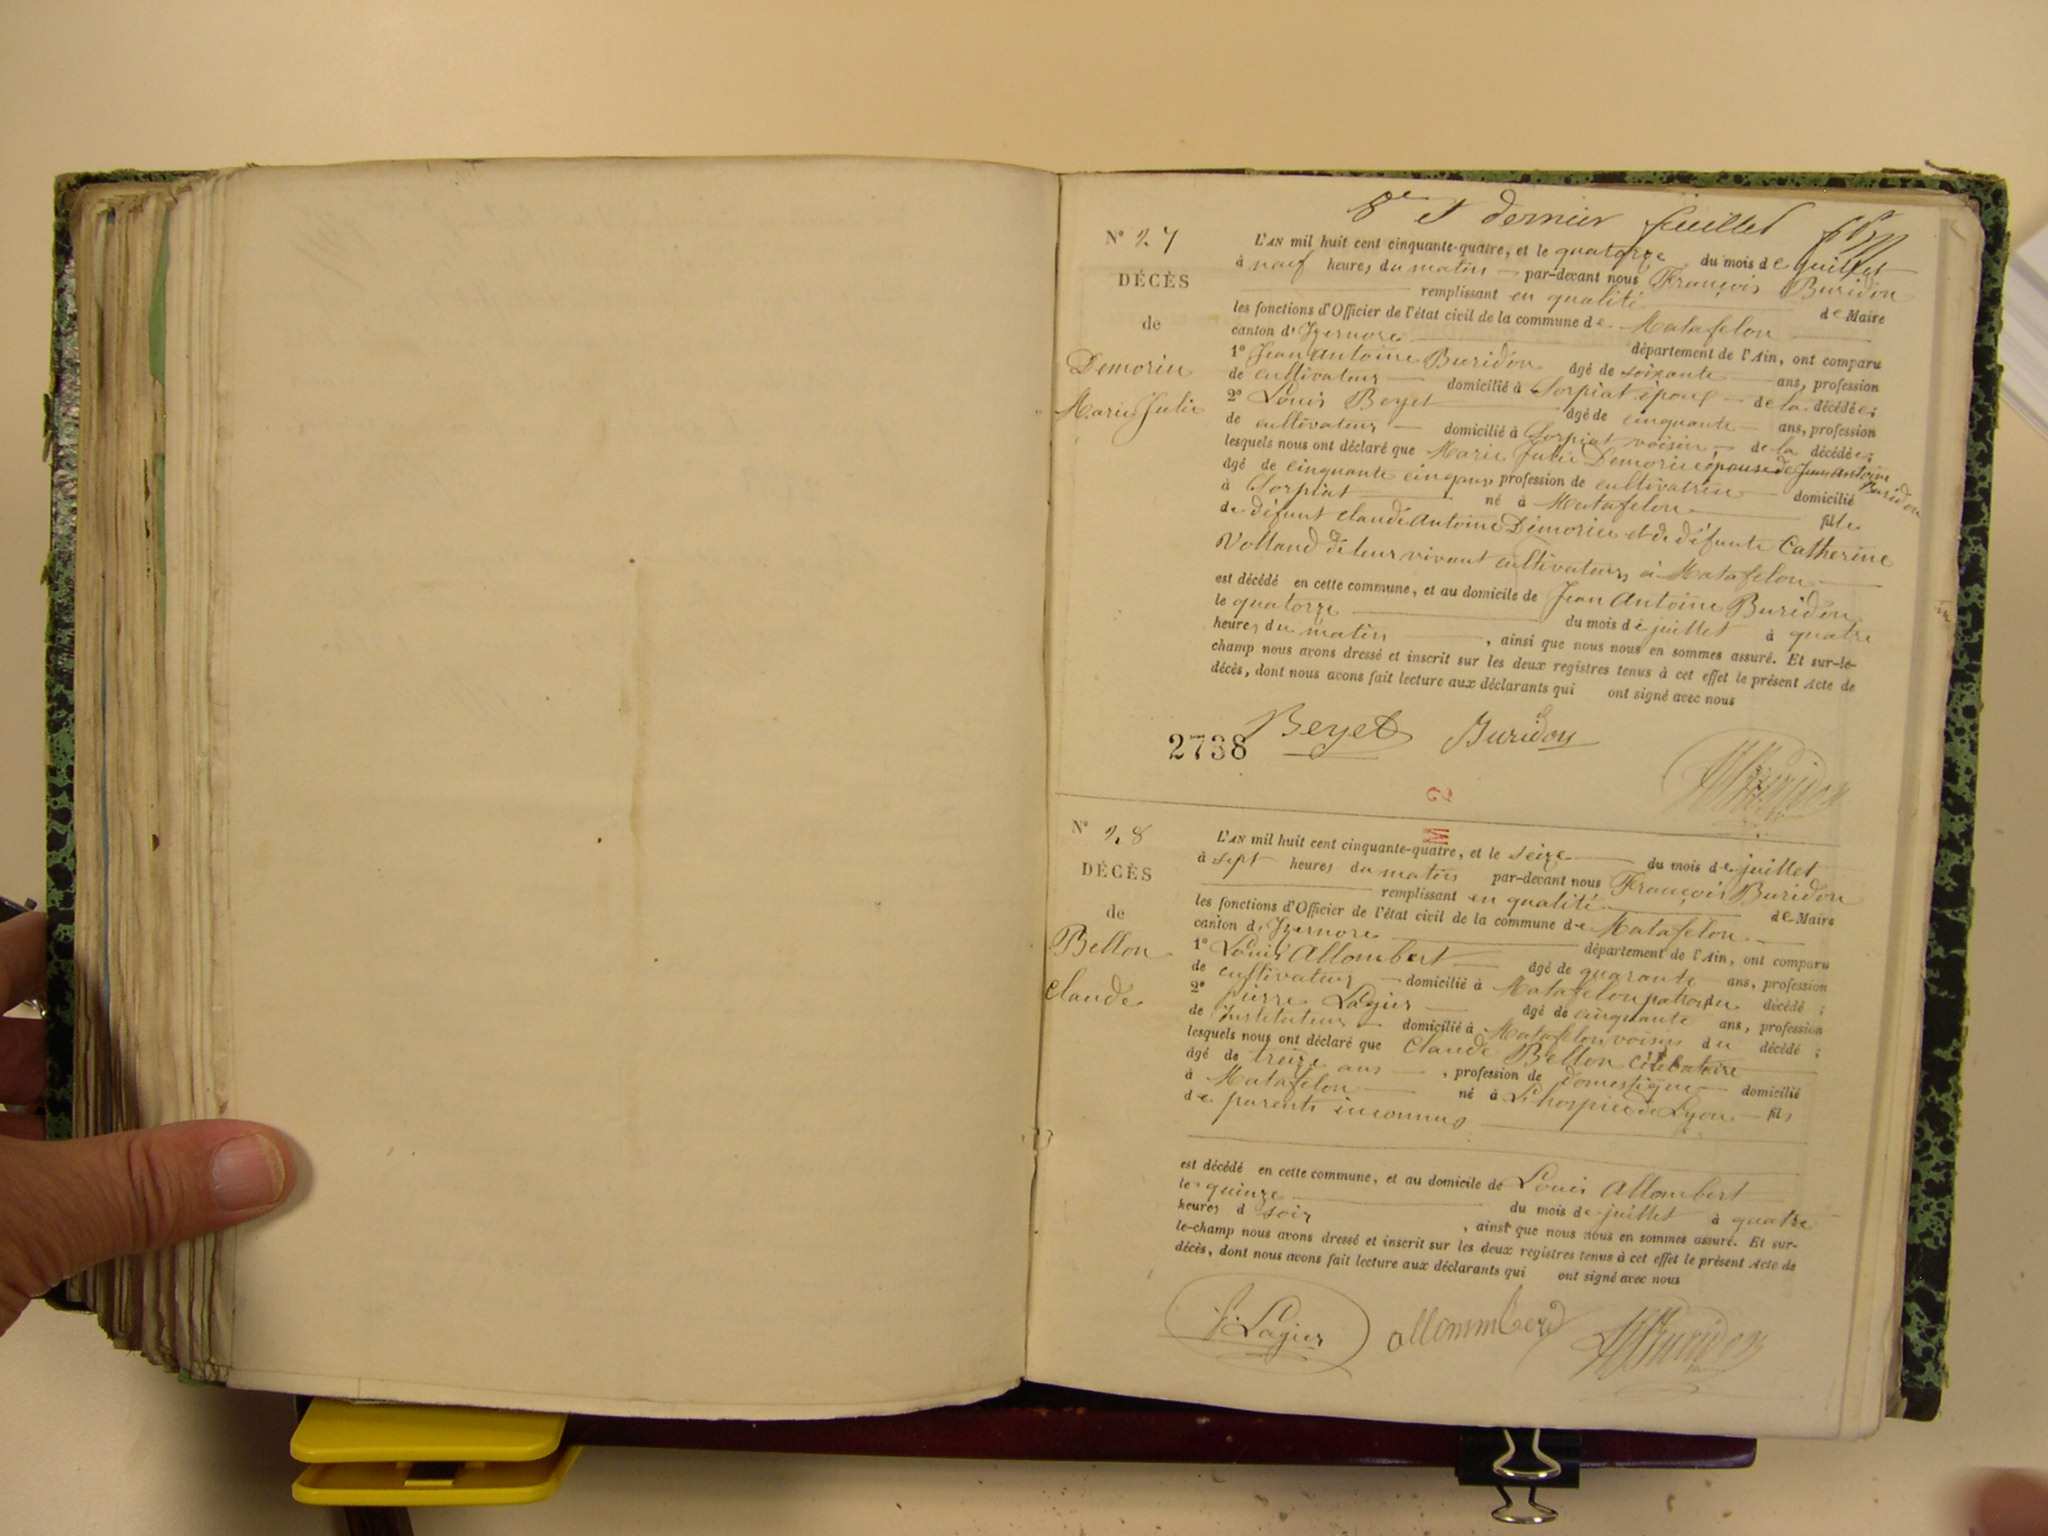 8e et dernier feuillet
N° 27
DÉCÈS
de
Demorin
Marie Julie
L'AN mil huit cent cinquante-quatre, et le quatorze du mois de juillet
à neuf heures du matin par-devant nous François Buridon
remplissant en qualité de Maire
les fonctions d'Officier de l'état civil de la commune de Matafelon
canton d'Izernore département de l'Ain, ont comparu
1° Jean Antoine Buridon âgé de soixante ans, profession
de cultivateur domicilié à Corpiat époux de la décédée;
2° Louis Beyet âgé de cinquante ans, profession
de cultivateur domicilié à Corpiat voisin de la décédée;
lesquels nous ont déclaré que Marie Julie Demorin épouse de Jean Antoine Buridon
âgé de cinquante cinq ans profession de cultivatrice domicilié
à Corpiat né à Matafelon fille
de défunt Claude Antoine Demorin et de défunte Catherine
Volland de leur vivant cultivateurs à Matafelon
est décédé en cette commune, et au domicile de Jean Antoine Buridon
le quatorze du mois de juillet à quatre
heures du matin, ainsi que nous nous en sommes assuré. Et sur-le-
champ nous avons dressé et inscrit sur les deux registres tenus à cet effet le présent Acte de
décès, dont nous avons fait lecture aux déclarants qui ont signé avec nous
Beyet Buridon
2738
Buridon
N° 28
DÉCÈS
de
Bellon
Claude
L'AN mil huit cent cinquante-quatre, et le seize du mois de juillet
à sept heures du matin par-devant nous François Buridon
remplissant en qualité de Maire
les fonctions d'Officier de l'état civil de la commune de Matafelon
canton d'Izernore département de l'Ain, ont comparu
1° Louis Allombert âgé de quarante ans, profession
de cultivateur domicilié à Matafelon patron du décédé;
2° pierre Lagier âgé de cinquante ans, profession
de instituteur domicilié à Matafelon voisin du décédé;
lesquels nous ont déclaré que Claude Bellon célibataire
âgé de treize ans, profession de domestique domicilié
à Matafelon né à L'hospice de Lyon fils
de parents inconnus
est décédé en cette commune, et au domicile de Louis Allombert
le quinze du mois de juillet à quatre
heures d soir, ainsi que nous nous en sommes assuré. Et sur-
le-champ nous avons dressé et inscrit sur les deux registres tenus à cet effet le présent Acte de
décès, dont nous avons fait lecture aux déclarants qui ont signé avec nous
P. Lagier allombert Buridon